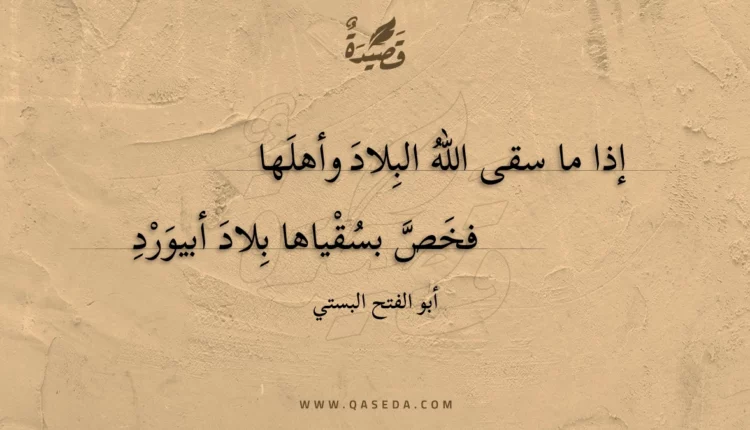 قَصِيدَةٌ
إذا ما سقى اللهُ البِلادَ وأهلَها
فخَصَّ بسُقْياها بِلادَ أبيوَرْدِ
أبو الفتح البستي
WWW.QASEDA.COM